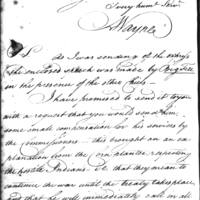 I very huml. Serv.
A Wayne
P.S.
As I was sending off the
The enclosed speech was made by Big Tree
in the presence of the other chiefs—
I have promised to send it to you
with a request that you would send him
some small compensation for his services by
the Commissioners. this brought on an ex
planation from the Cornplanter respecting
the hostile Indians. Vt. that they mean to
continue the war until the treaty takes place
and that he will immediately call in all